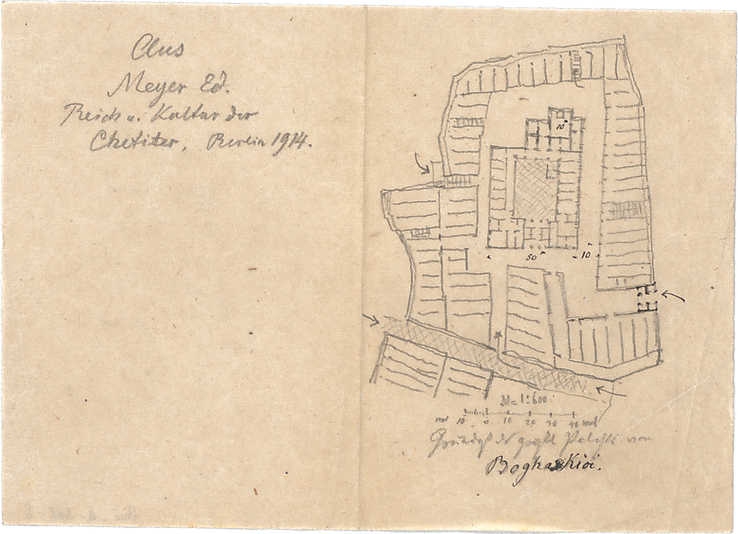 Clus
Meyer Ed.
Reich u. Kultur der
Chetiter, Berlin 1914.
10
50
10
M = 1:600
10 0 10 20 30 40
Grundriß der große Paläste von
Boghaskiöi.